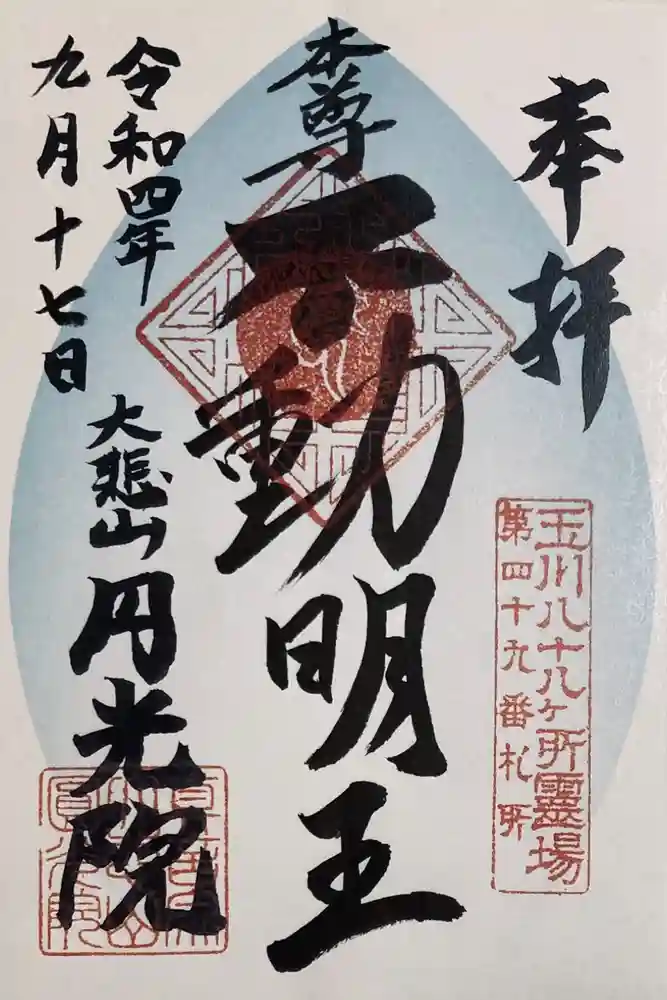 奉拝
玉川八十八ヶ所霊場
第四十九番札所
本尊
不動明王
令和四年
九月十七日
大悲山
円光院